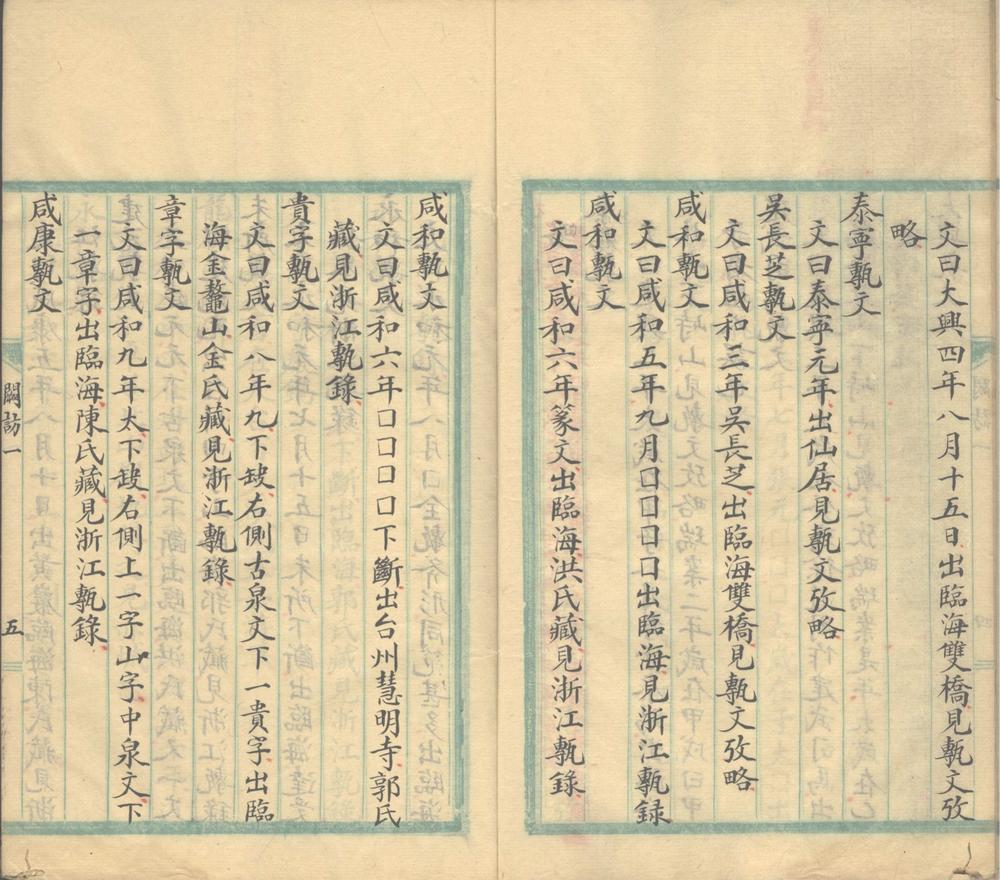 文曰大興四年八月十五日出臨海雙橋見甎文攷
略
泰寧甎文
文曰泰寧元年出仙居見甎文攷略
吳長芝甎文
文曰咸和三年吳長芝出臨海雙橋見甎文攷略
咸和甎文
文曰咸和五年九月囗囗囗囗出臨海見浙江甎録
咸和甎文
文曰咸和六年篆文出臨海洪氏藏見浙江甎錄
咸和甎文
文曰咸和六年囗囗囗囗下斷出台州慧明寺郭氏
藏見浙江甎錄
貴字甎文
文曰咸和八年九下缺右側古泉文下一貴字出臨
海金鼇山金氏藏見浙江甎錄
章字甎文
文曰咸和九年太下缺右側上一字山字中泉文下
一章字出臨海陳氏藏見浙江甎錄
咸康甎文
闕訪一
五